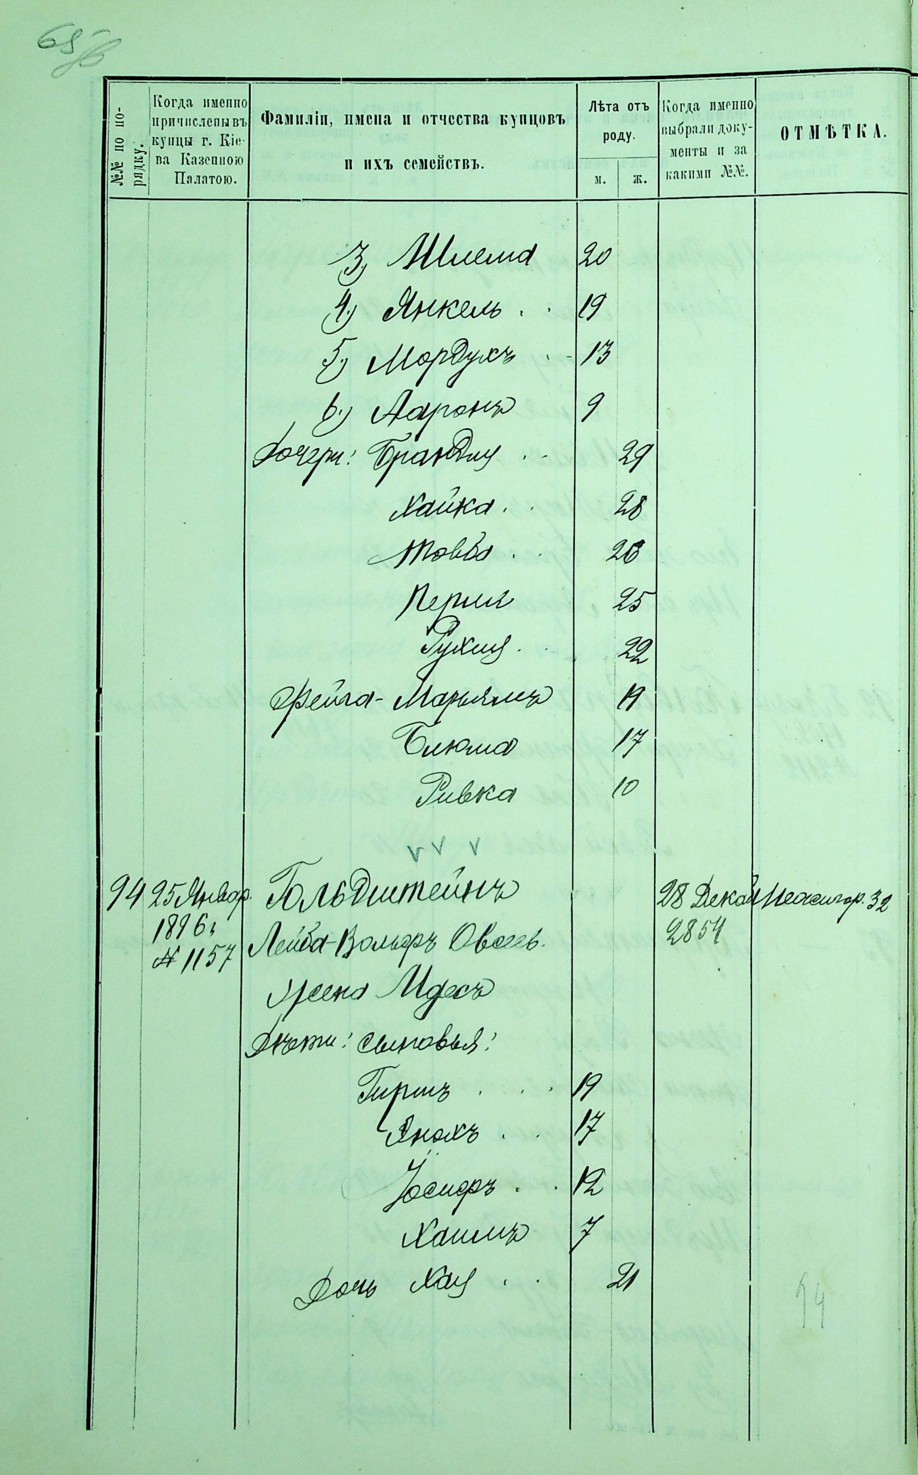 №№ по по-
рядку.
Когда именно
причислены въ
купцы г. Кіе-
ва Казенною
Палатою.
Фамиліи, имена и отчества купцовъ
и ихъ семействъ.
Лѣта отъ
роду.
м. ж.
Когда именно
выбрали доку-
менты и за
какими №№.
ОТМѢТКА.
3) Шлема 20
4.) Янкель . . 19
5) Мордухъ . 13
6.) Ааронъ 9
Дочери: Брандля . . 29
Хайка . . 28
Товба . . 26
Перля 25
Рухля . . 22
Фейга-Маріямъ 19
Блюма 17
Ривка 10
94 25 Январ. Гольдштейнъ 28 Декаб. 32
1896 г. Лейба-Вольфъ Овсеев. 2854
№ 1157
Жена Идесъ
Дѣти: сыновья:
Гиршъ . . . 19
Янохъ . . . 17
Іосифъ . . 12
Хаимъ 7
Дочь Хая . . 21
94